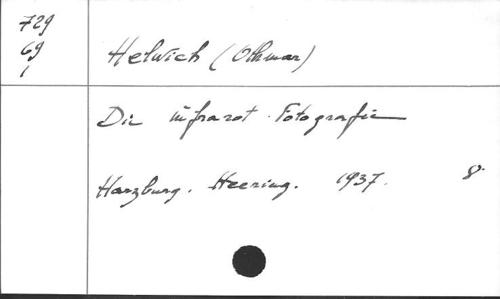 729
69
1
Helwich (Othmar)
Die infrarot-Fotografie
Harzburg. Heering. 1937. 8°